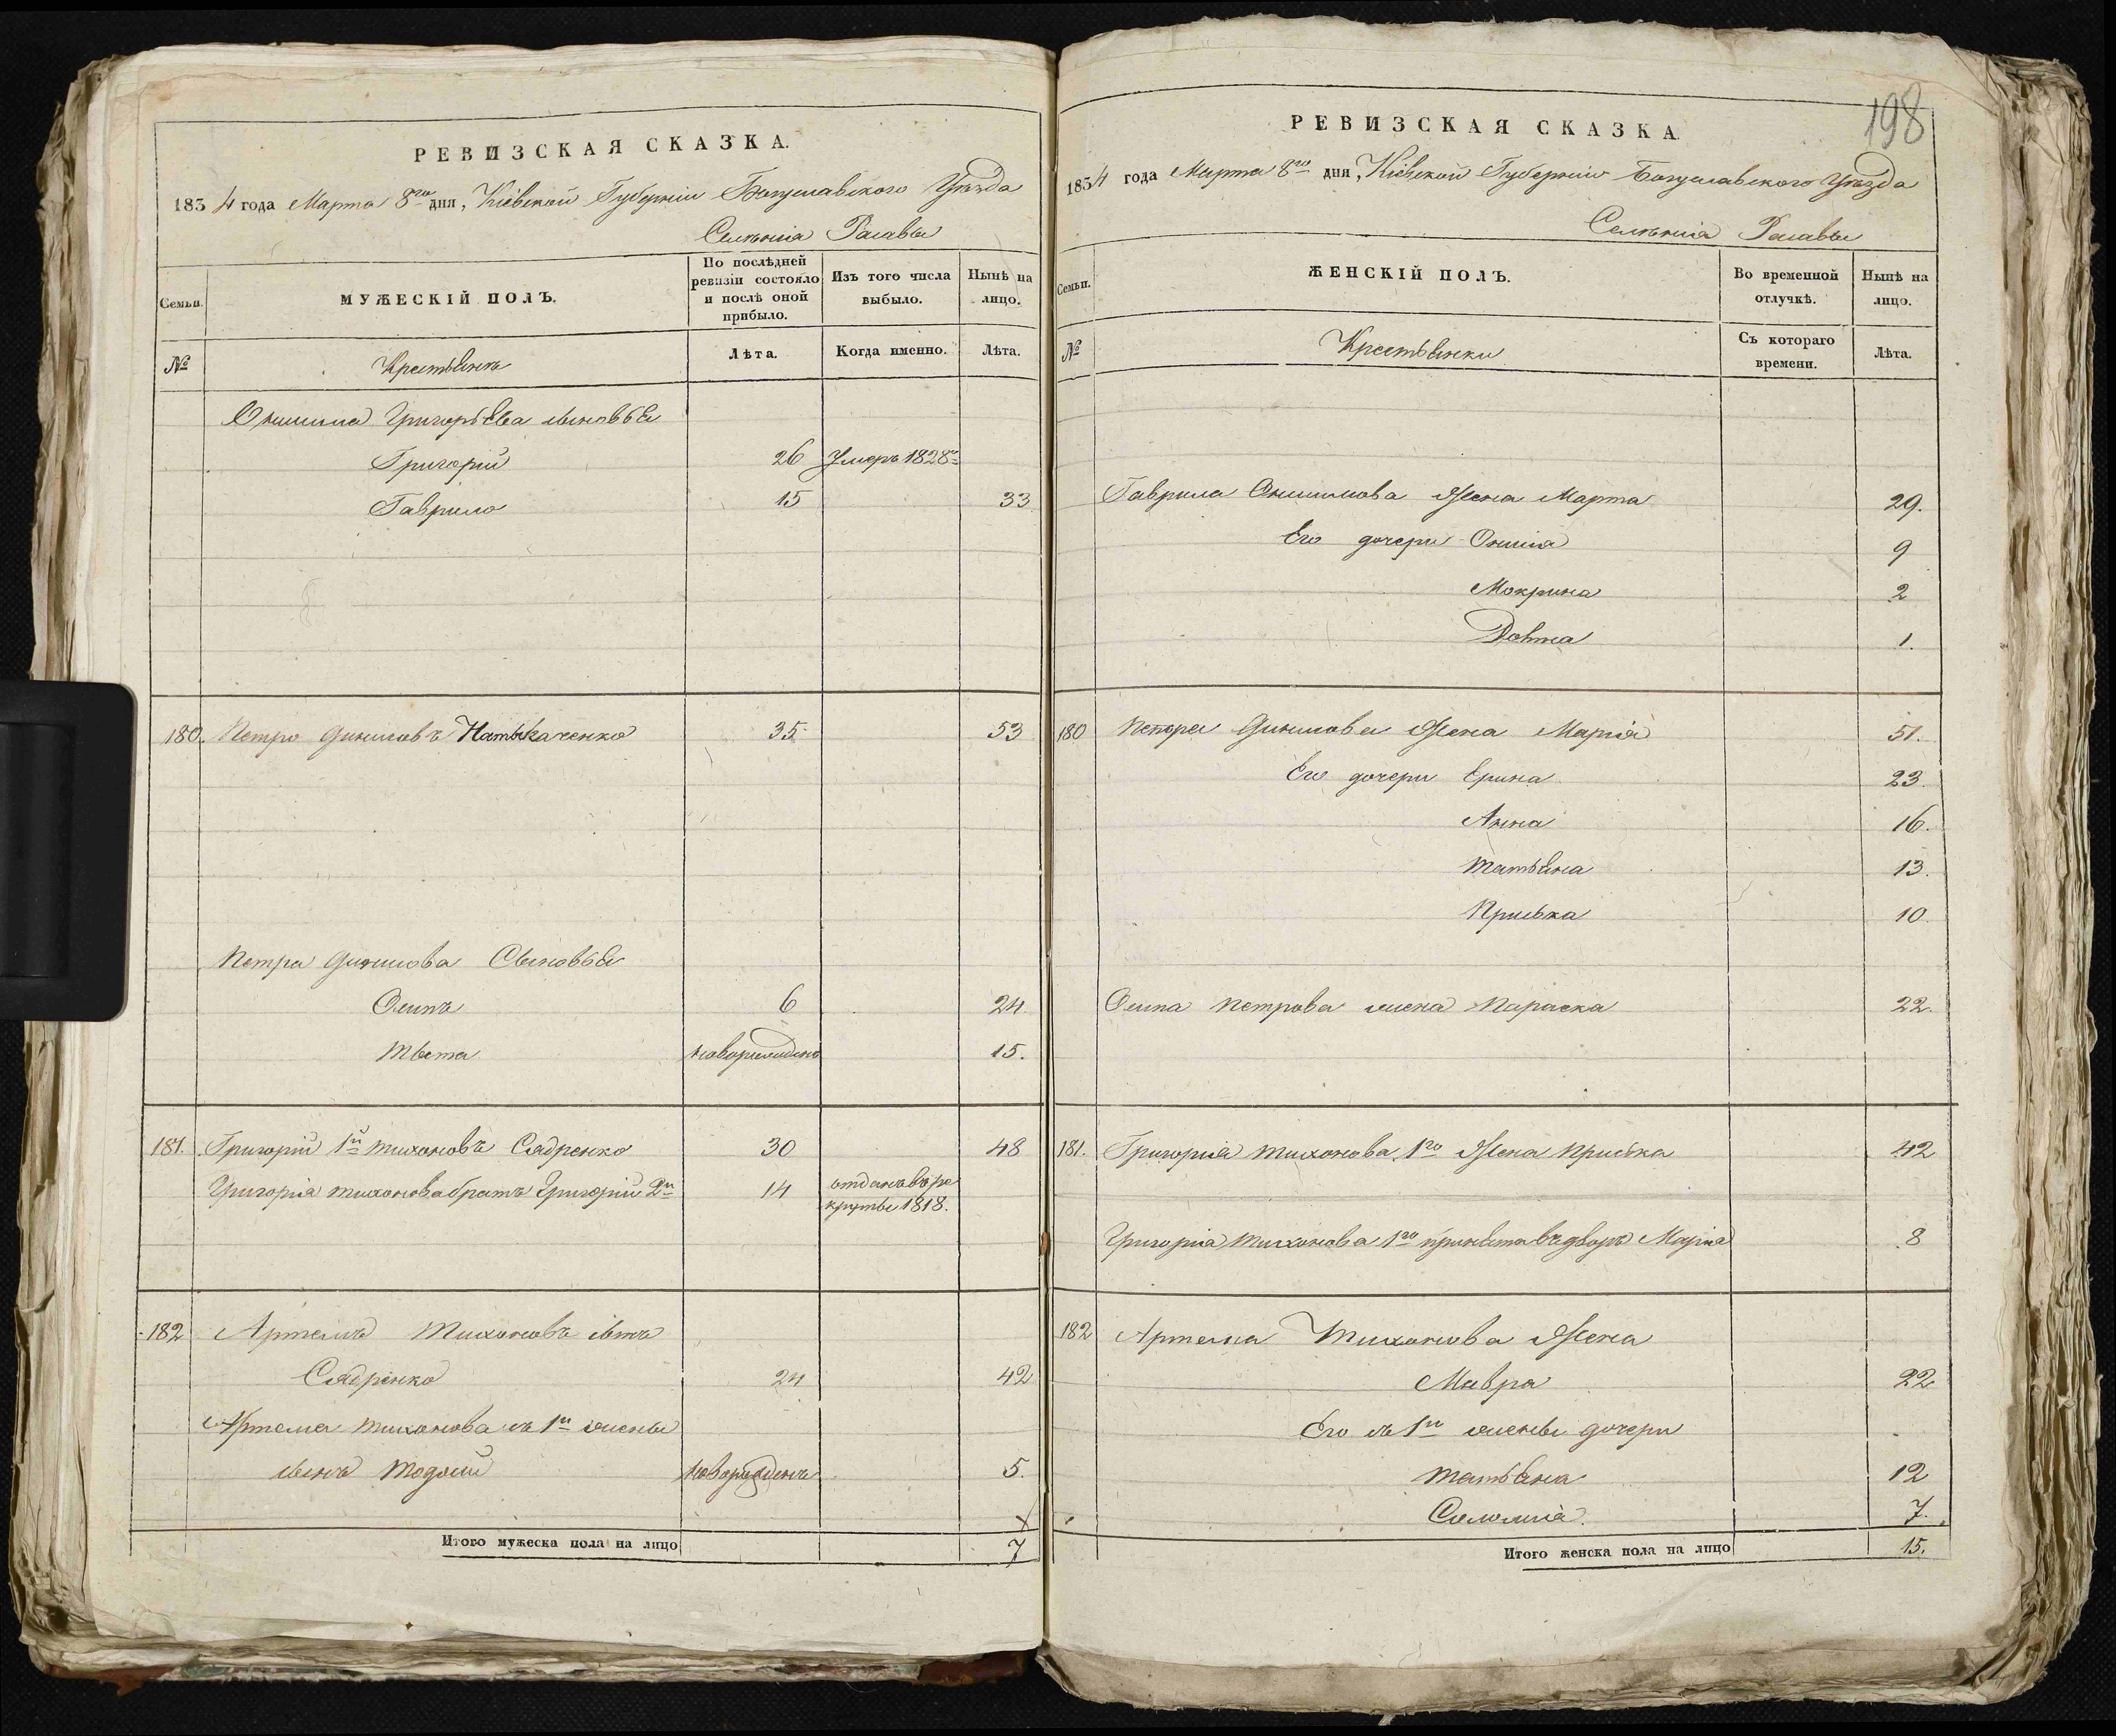 РЕВИЗСКАЯ СКАЗКА.
1834 года Марта 8го дня, Кіевской Губерніи Богуславского Уѣзда
Селенія Расавы
Семьи.
МУЖЕСКІЙ ПОЛЪ.
По послѣдней ревизіи состояло и послѣ оной прибыло.
Изъ того числа выбыло.
Нынѣ на лицо.
№
Крестьянъ
Лѣта.
Когда именно.
Лѣта.
Онисима Григорьева сыновья
Григорій 26 Умеръ 1828го
Гаврило 15 33
180. Петро Данилов Натыкаченко 35 53
Петра Данилова Сыновья
Осипъ 6 24
новорожденъ 15.
181. Григорій 1й Тихоновъ Сядренко 30 48
Григорія Тихонова братъ Григорій 2й 14 отданъ въ ре
круты 1818.
182 Артемъ Тихоновъ сынъ
Сядренко 24 42
Артема Тихонова съ 1й жены
сынъ Тодосій новорожденъ 5.
Итого мужеска пола на лицо 7
198
РЕВИЗСКАЯ СКАЗКА.
1834 года Марта 8го дня, Кіевской Губерніи Богуславского Уѣзда
Селенія Расавы
Семьи.
ЖЕНСКІЙ ПОЛЪ.
Во временной отлучкѣ.
Нынѣ на лицо.
№
Крестьянки
Съ котораго времени.
Лѣта.
Гаврила Онисимова Жена Марта 29.
Его дочери Онисія 9
Мокрина 2
Домна 1.
180 Петра Данилова Жена Марія 51.
Его дочери Ерина 23.
Анна 16.
Татьяна 13.
Приська 10.
Осипа Петрова жена Параска 22.
181. Григорія Тихонова 1го Жена Приська 42
Григорія Тихонова 1го принята въ дворъ Марія 8
182 Артема Тихонова Жена
Мавра 22
Его съ 1й жены дочери
Татьяна 12
Соломія 7.
Итого женска пола на лицо 15.